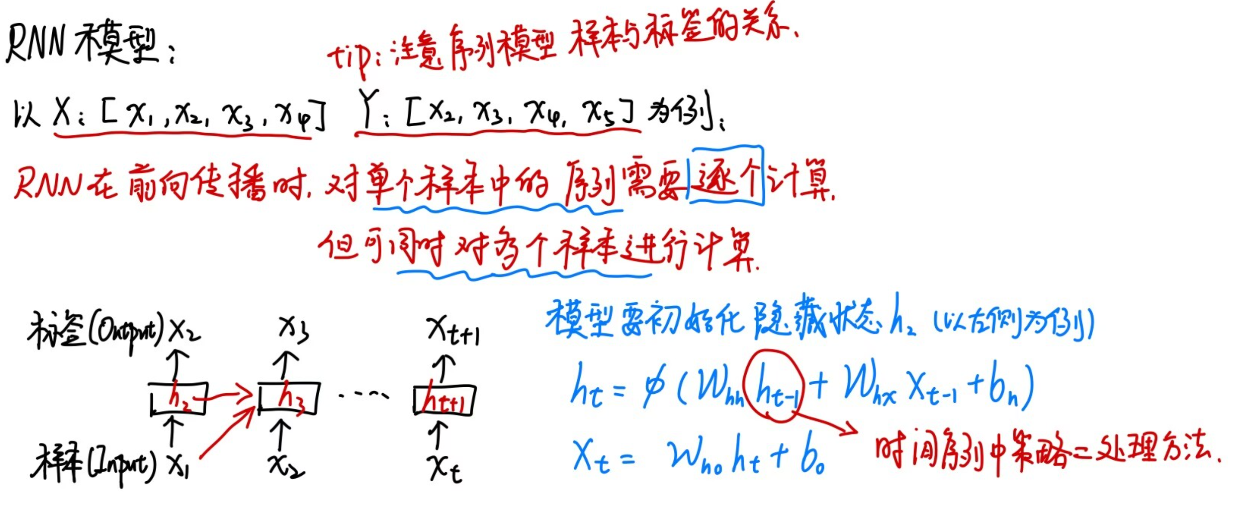 RNN模型:
tip:注意序列模型 样本与标签的关系.
以 X: [x₁,x₂,x₃,x₄] Y: [x₂,x₃,x₄,x₅] 为例:
RNN在前向传播时,对单个样本中的序列需要逐个计算.
但可同时对多个样本进行计算.
标签(Output) x₂ x₃ xₜ₊₁
h₂ h₃ .... hₜ₊₁
样本(Input) x₁ x₂ xₜ
模型要初始化隐藏状态h₂ (以左侧为例)
hₜ = φ(Wₕₕ hₜ₋₁ + Wₕₓ Xₜ₋₁ + bₕ)
Xₜ = Wₕₒ hₜ + bₒ
时间序列中策略二处理方法.